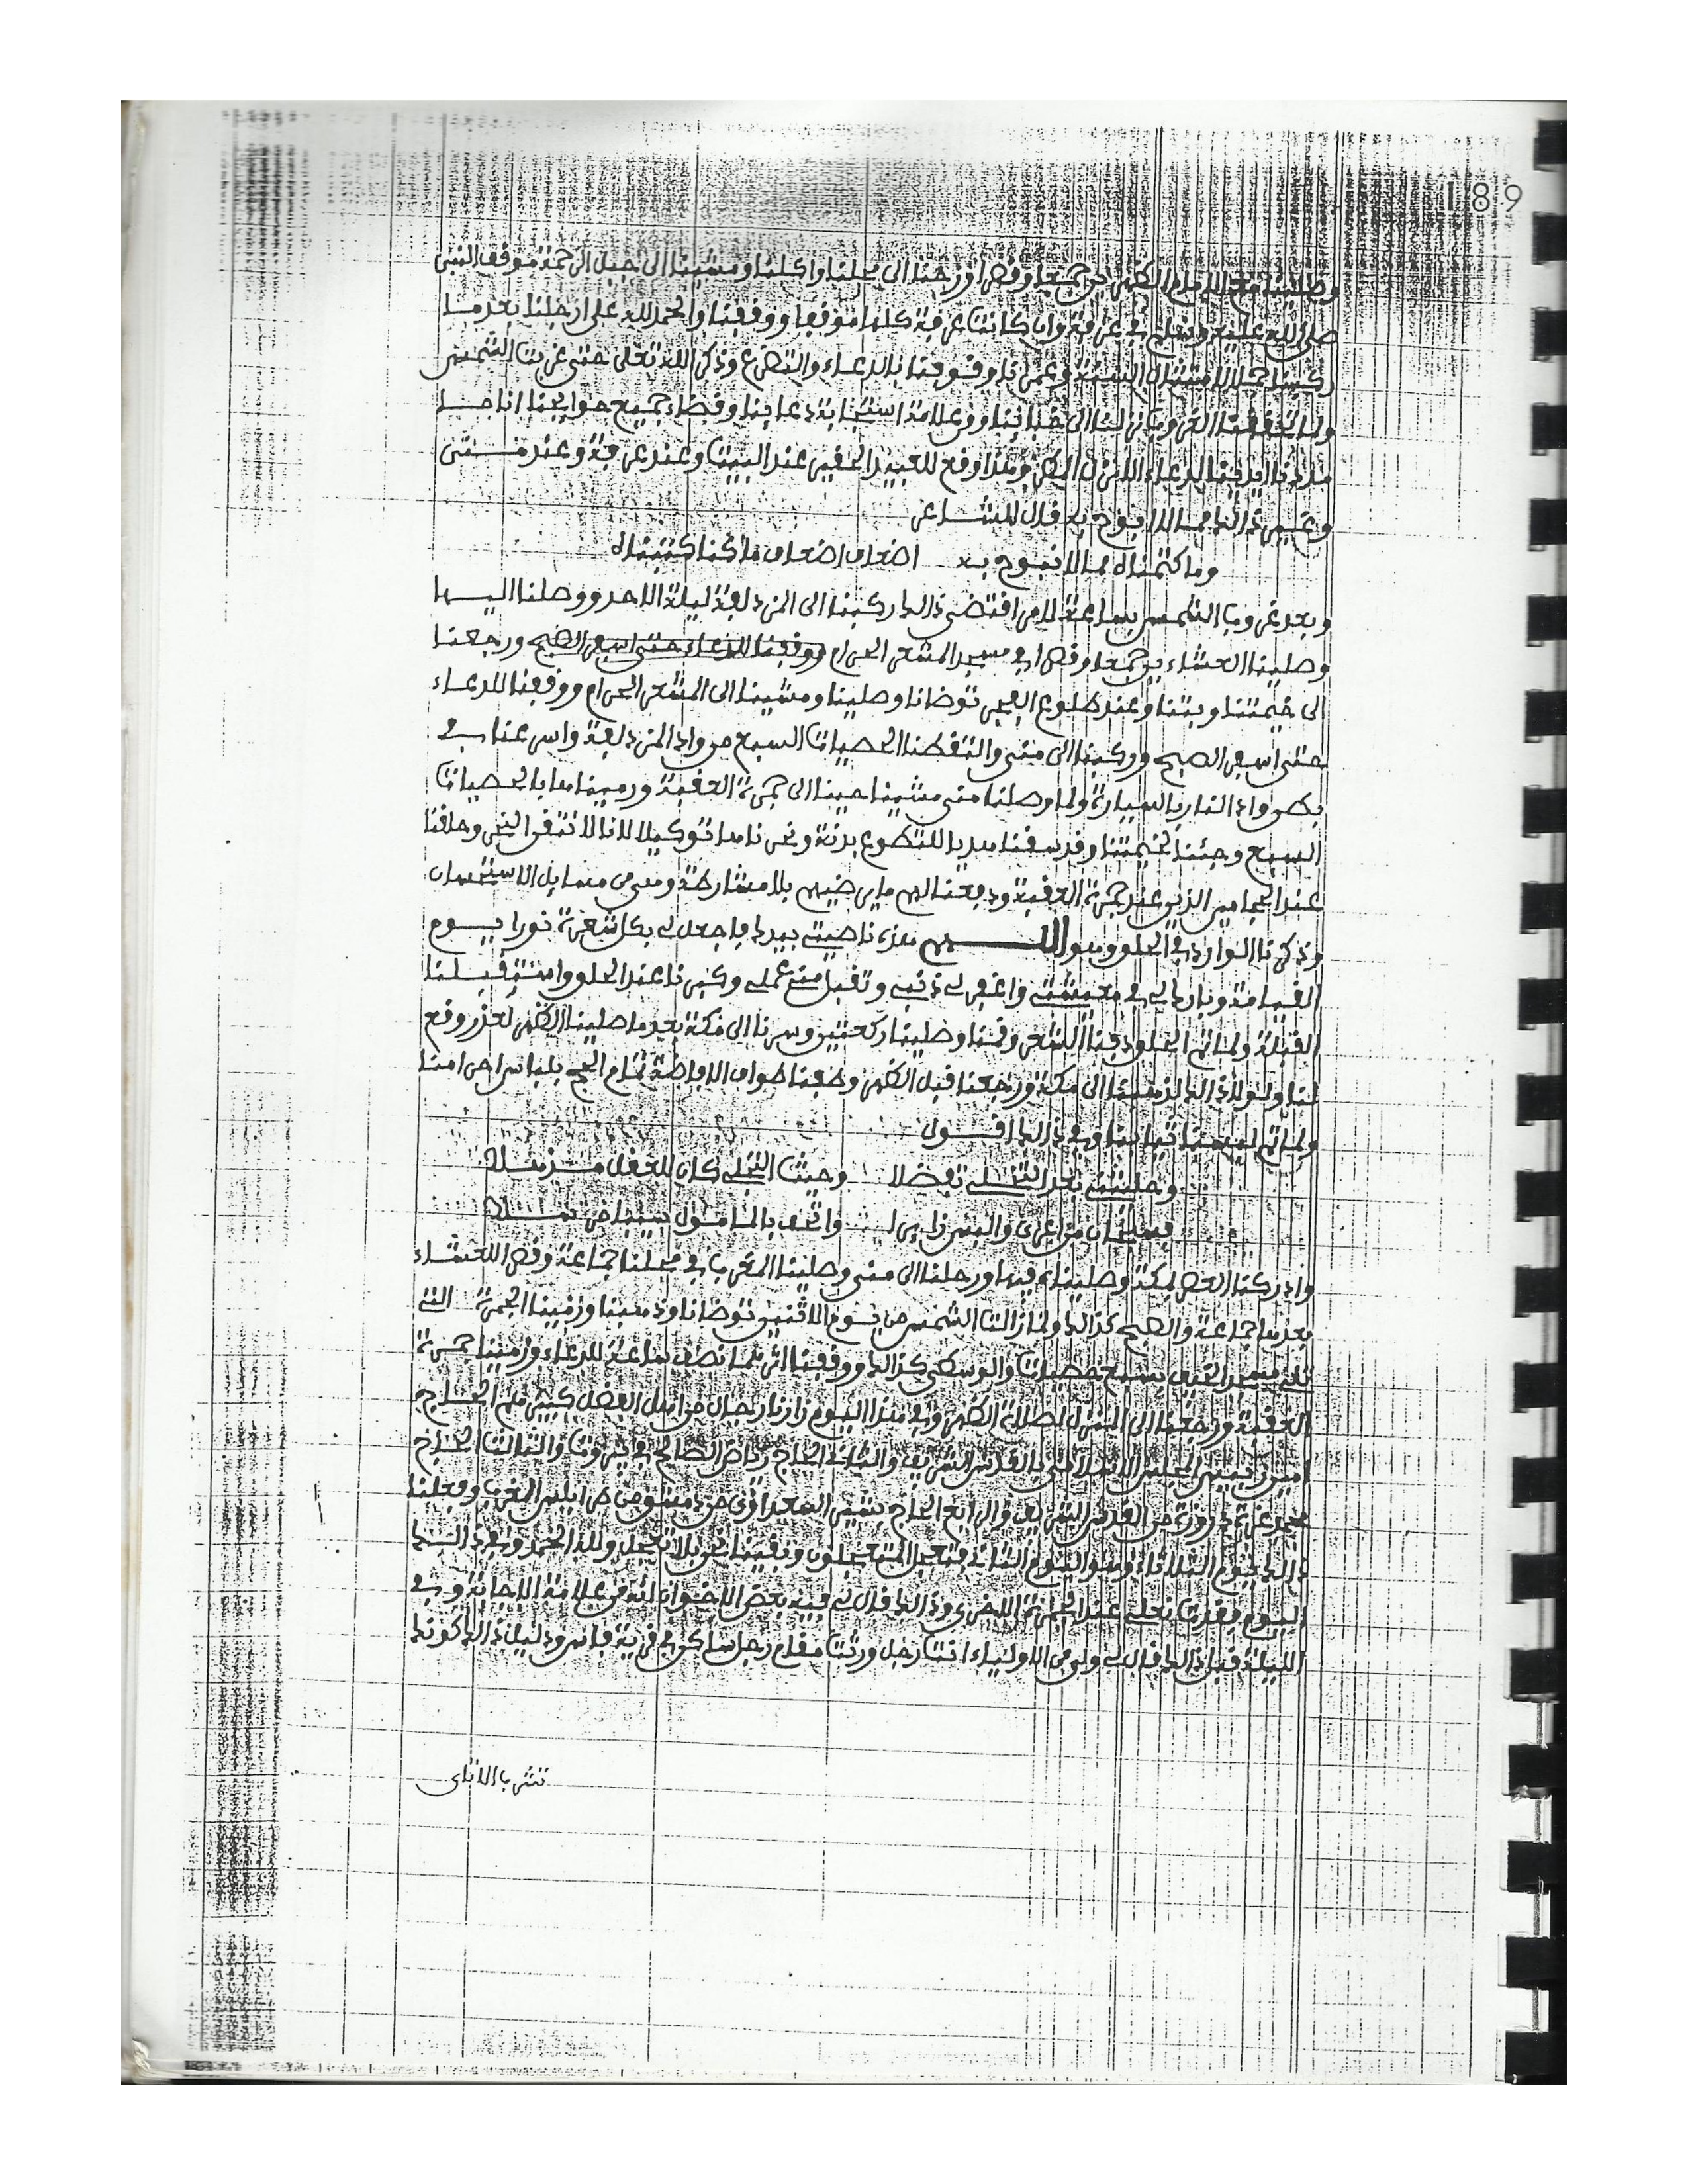 189
وصلينا مع الامام الظهرين جمعا وقصرا ورجعنا الى محلنا واكلنا ومشينا الى جبل الرحمة موقف النبي
صلى الله عليه وسلم في عرفة وان كانت عرفة كلها موقفا ووقفنا والحمد لله على ارجلنا بعد ما
ركبنا جملا لامتثال السنة وعمرنا وقوفنا بالدعاء والتضرع وذكر الله تعلى حتى غربت الشمس
ولما تحققنا الغروب انزلنا الى خبائنا ومن علامة استجابة دعائنا وقضاء جميع حوايجنا اننا
ما اردنا الدعاء الا نزل وهذا وقع للعبيد الحقير عند البيت وعند عرفة وعند منى
وغير ذالك مما لا ابوح به قال الشاعر
وما كتمناه مما لا نبوح به اضعاف اضعاف ما كنا كتبناه
وبعد غروب الشمس بساعة لامر اقتضى ذالك ركبنا الى المزدلفة ليلة الاحد ووصلنا اليها
وصلينا العشاءين جمعا وقصرا في مسجد المشعر الحرام ووقفنا للدعاء حتى اسفر الصبح ورجعنا
الى خيمتنا وبتنا وعند طلوع الفجر توضانا وصلينا ومشينا الى المشعر الحرام ووقفنا للدعاء
حتى اسفر الصبح وركبنا الى منى والتقطنا الحصيات السبع من واد المزدلفة واسرعنا في
بطن واد النار بالسيارة ولما وصلنا منى مشينا حينا الى جمرة العقبة ورميناها بالحصيات
السبع وجئنا لخيمتنا وقد سقنا هديا للتطوع بدنة ونحرناها توكيلا لانا لا نتقن النحر وحلقنا
عند الحجامين الذين عند جمرة العقبة ودفعنا لهم ما يرضيهم بلا مشارطة وهي من مسايل الاستحسان
وذكرنا الوارد في الحلق وهو اللهم هذه ناصيتي بيدك فاجعل لي بكل شعرة نورا يوم
القيامة وبارك لي في معيشتي واغفر لي ذنبي وتقبل مني عملي وكبرنا عند الحلق واستقبلنا
القبلة ولما تم الحلق دفنا الشعر وقمنا وصلينا ركعتين وسرنا الى مكة بعد ما صلينا الظهر لعذر وقع
لنا ولولا ذالك لذهبنا الى مكة ورجعنا قبل الظهر وطفنا طواف الافاضة تمام الحج بلباس احرامنا
ولما تم لبسنا ثيابنا وفي ذالك اقول
وحليتني بعد التخلي تفضلا وحيث التجلي كان للعقل مذهلا
فسبحان من اعرى والبس زايرا واتحف بالمامول
وادركنا العصر بمكة وصليناه فيها ورحلنا الى منى وصلينا المغرب في محلنا جماعة وقصر العشاء
بعدها جماعة والصبح كذالك ولما زالت الشمس من يوم الاثنين توضانا وذهبنا ورمينا الجمرة التي
تلي مسجد الخيف بسبع حصيات والوسطى كذالك ووقفنا اثرهما نصف ساعة للدعاء ورمينا جمرة
العقبة ورجعنا الى المنزل لصلاة الظهر وفي هذا اليوم زارنا رجال من اهل الفضل كثير منهم الحاج
امين رئيس المجلس الاعلى بالقدس الشريف والثاني الحاج رياض الصالح من بيروت والثالث الحاج
محمد عزة دروزة من القدس الشريف والرابع الحاج من دمشق من اهل الغرب وفعلنا
ذالك يوم الثلاثاء وهو اليوم الثاني فتعجل المتعجلون وبقينا نحن بلا تعجل ولله الحمد وفي ذالك
اليوم فقدت نعلي عند الجمرة الاخرى وذالك قال لي فيه بعض الاخوان انه من علامة الاجابة وفي
الليلة قبل ذالك قال لي ولي من الاولياء انت رجل ورثت مقام رجل ساكن في قرية فاس ودليل ذالك كونك
تشرب الاتاي